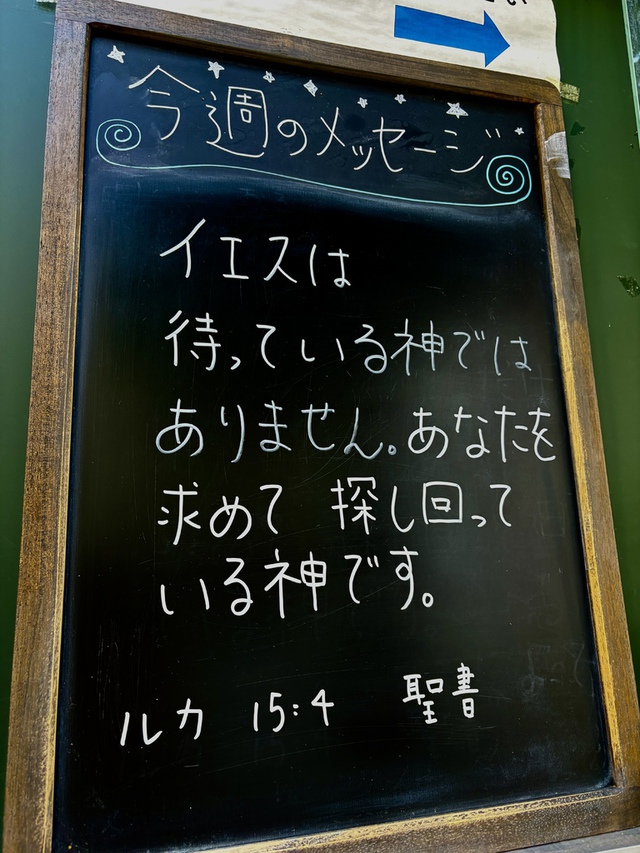 今週のメッセージ
イエスは
待っている神では
ありません。あなたを
求めて 探し回って
いる神です。
ルカ 15:4 聖書